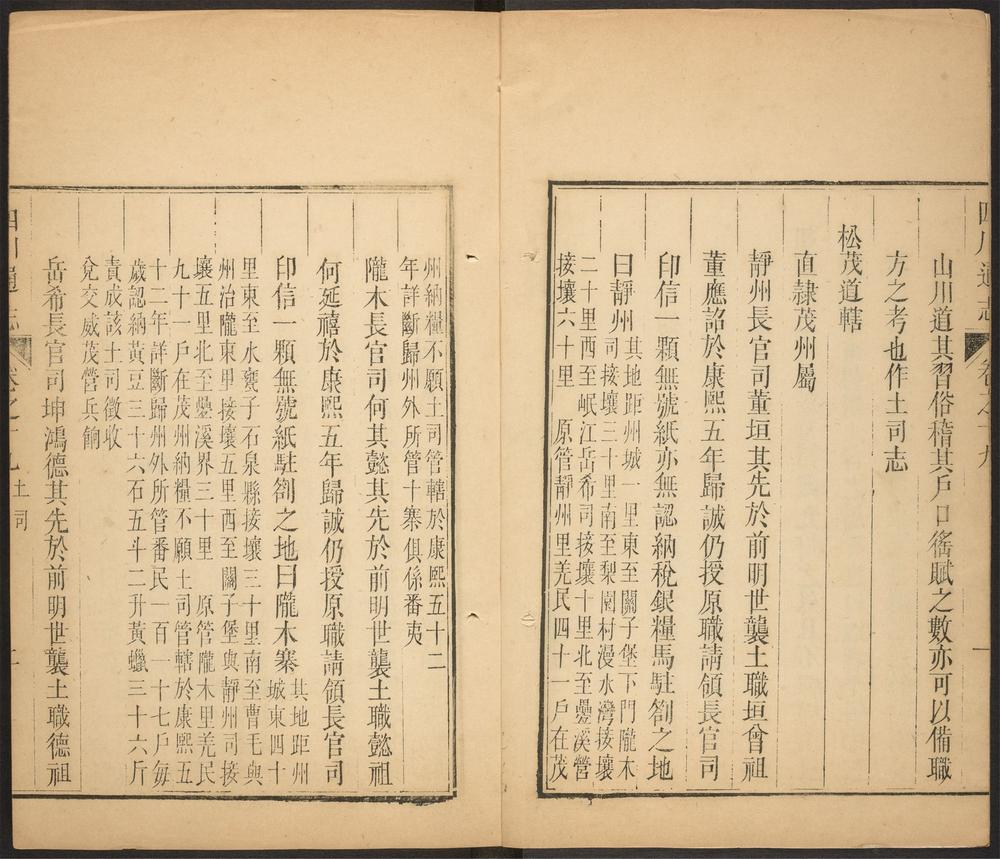 四川通志
卷之十九
一
山川道其習俗稽其戶口徭賦之數亦可以備職
方之考也作土司志
松茂道轄
直隷茂州屬
靜州長官司董垣其先於前明世襲土職垣曾祖
董應詔於康熙五年歸誠仍授原職請領長官司
印信一顆無號紙亦無認納稅銀糧馬駐劄之地
曰靜州
其地距州城一里東至關子堡下門隴木
司接壤三十里南至梨園村漫水灣接壤
二十里西至岷江岳希司接壤十里北至疊溪營
接壤六十里 原管靜州里羌民四十一戶在茂
州納糧不願土司管轄於康熙五十二
年詳斷歸州外所管十寨俱係番夷
隴木長官司何其懿其先於前明世襲土職懿祖
何延禧於康熙五年歸誠仍授原職請領長官司
印信一顆無號紙駐劄之地曰隴木寨
其地距州
城東四十
里東至水甕子石泉縣接壤三十里南至曹毛與
州治隴東里接壤五里西至關子堡與靜州司接
壤五里北至疊溪界三十里 原管隴木里羌民
九十一戶在茂州納糧不願土司管轄於康熙五
十二年詳斷歸州外所管番民一百一十七戶每
歲認納黃豆三十六石五斗二升黃蠟三十六斤
責成該土司徵收
兌交威茂營兵餉
岳希長官司坤鴻德其先於前明世襲土職德祖
四川通志
卷之十九 土司
二